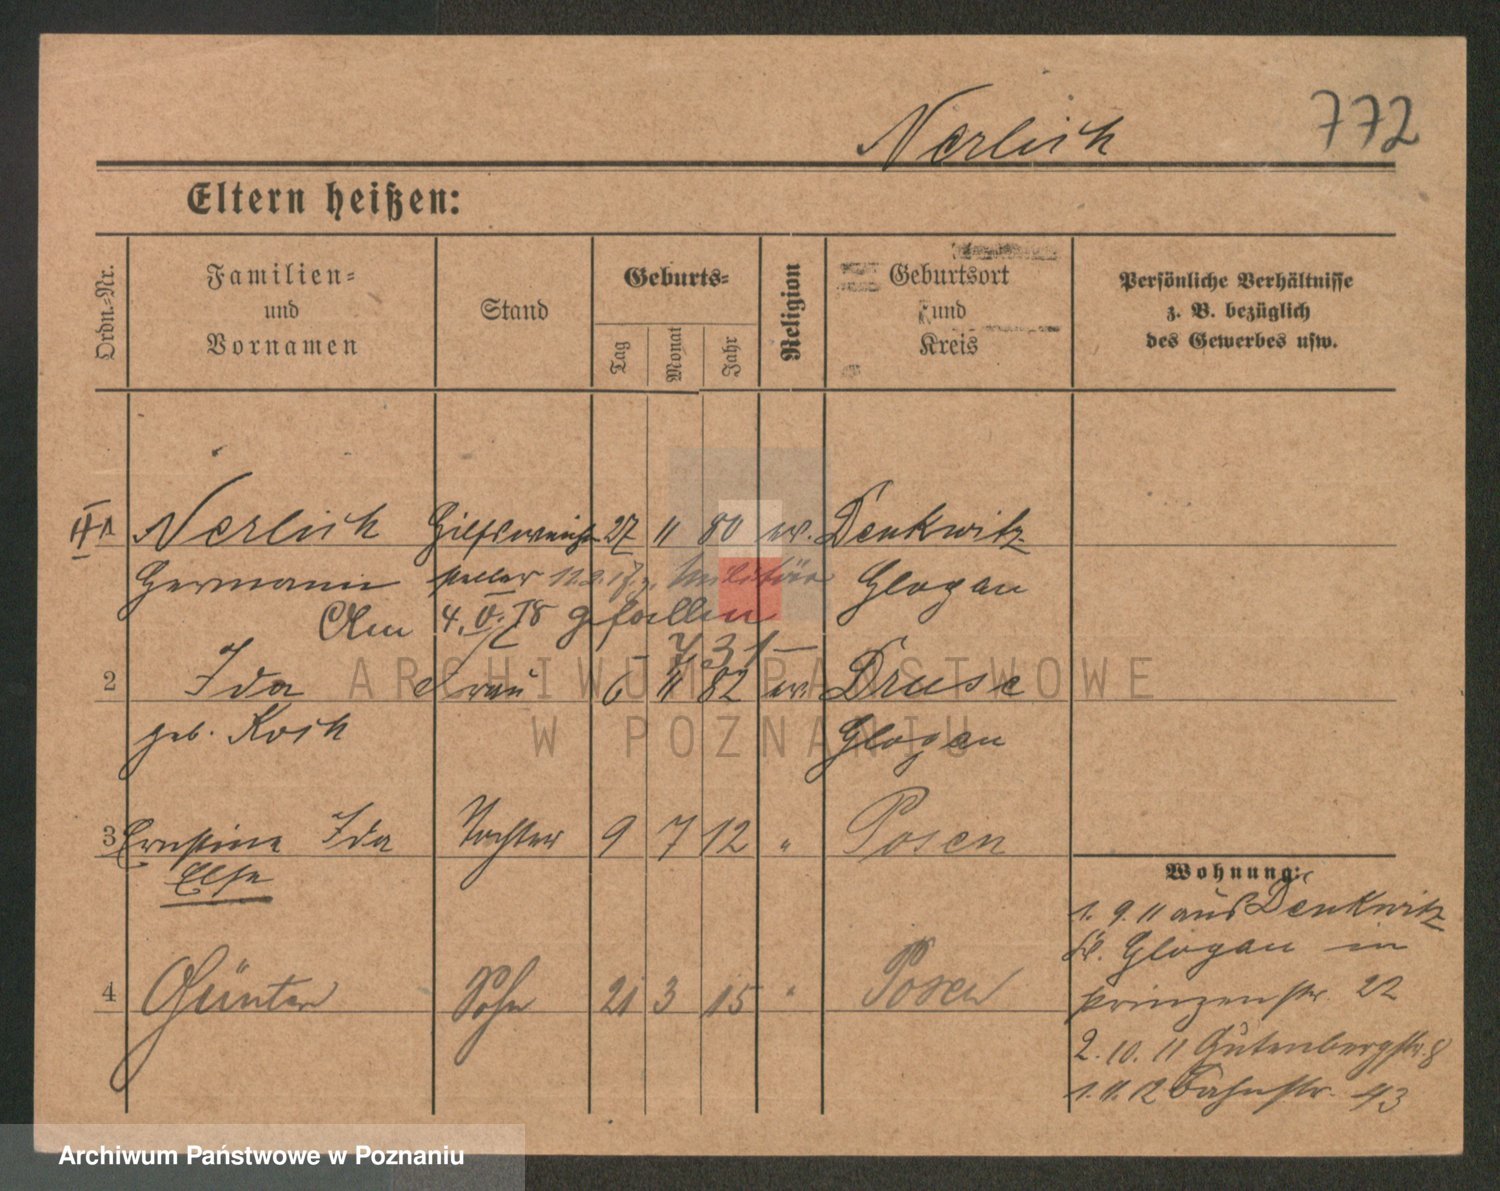 Nerlich 772
Eltern heißen:
Ordn.-Nr.
Familien-
und
Vornamen
Stand
Geburts-
Tag
Monat
Jahr
Religion
Geburtsort
und
Kreis
Persönliche Verhältnisse
z. B. bezüglich
des Gewerbes usw.
II 1 Nerlich Hilfsweichen 27 11 80 ev. Denkwitz
Hermann steller Militär Glogau
Am 4. V. 18 gefallen
731
2 Ida Frau 6 11 82 ev. Druse
geb. Koch Glogau
3 Ernstine Ida Tochter 9 7 12 " Posen
Else
4 Günter Sohn 21 3 15 " Posen
Wohnung:
1. 9. 11 aus Denkwitz
Kr. Glogau in
Prinzenstr. 22
2. 10. 11 Gutenbergstr. 8
1. 11. 12 Bahnstr. 43
ARCHIWUM PAŃSTWOWE
W POZNANIU
Archiwum Państwowe w Poznaniu